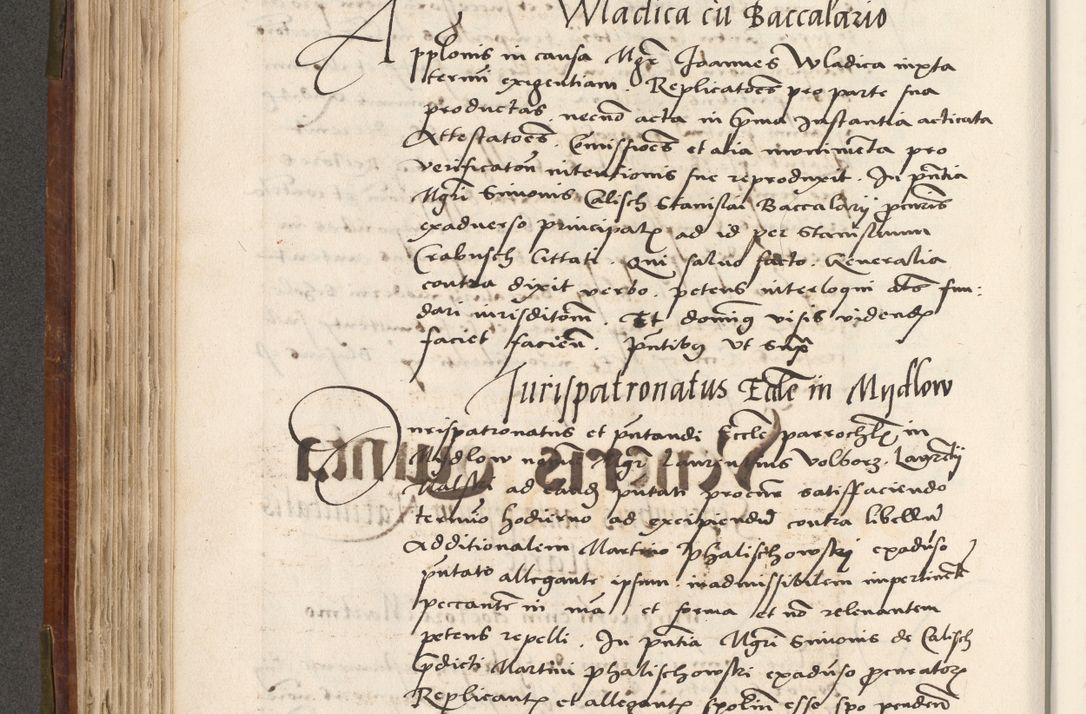 Wladica cū Baccalario
Applonis in causa Mgr Joannes Wladica iuxta
termi exigentiam. Replicatōes pro parte sua
productas, necnō acta in prima Instantia acticata
Attestatōes, Cōmissiōes et alia monimēta pro
verificatōn intentionis sue reproduxit. In pñtia
Mgri Simonis Calisch Stanislai Baccalarij procuris
exaduerso principalr ad id per Stanislaum
Crabusch Cittati. Qui saluo facto, Generalia
contra dixit verbo, petens interloqui fun:
dari iurisditōem. Et dominus visis videndis
faciet faciend pñtibus Ut supra
Jurispatronatus Eccle in Mydlow
Jurispatronatus et pñtandi Eccle parrochlr in
Mydlow Mgr Laurentius Volborz Laurentij
ad eandem pñtati procur satisfaciendo
termino hodierno ad excipiendū contra libellū
additionalem Martino Phalischowskj exaduso
pñtato allegante ipsum inadmissibilem impertinentē
peccantē in mā et forma et nō releuantem
petens repelli. In pñtia Mgri Simonis de Calisch
predicti Martini Phalischowskj exaduso procurator
Replicantis et allegantis esse